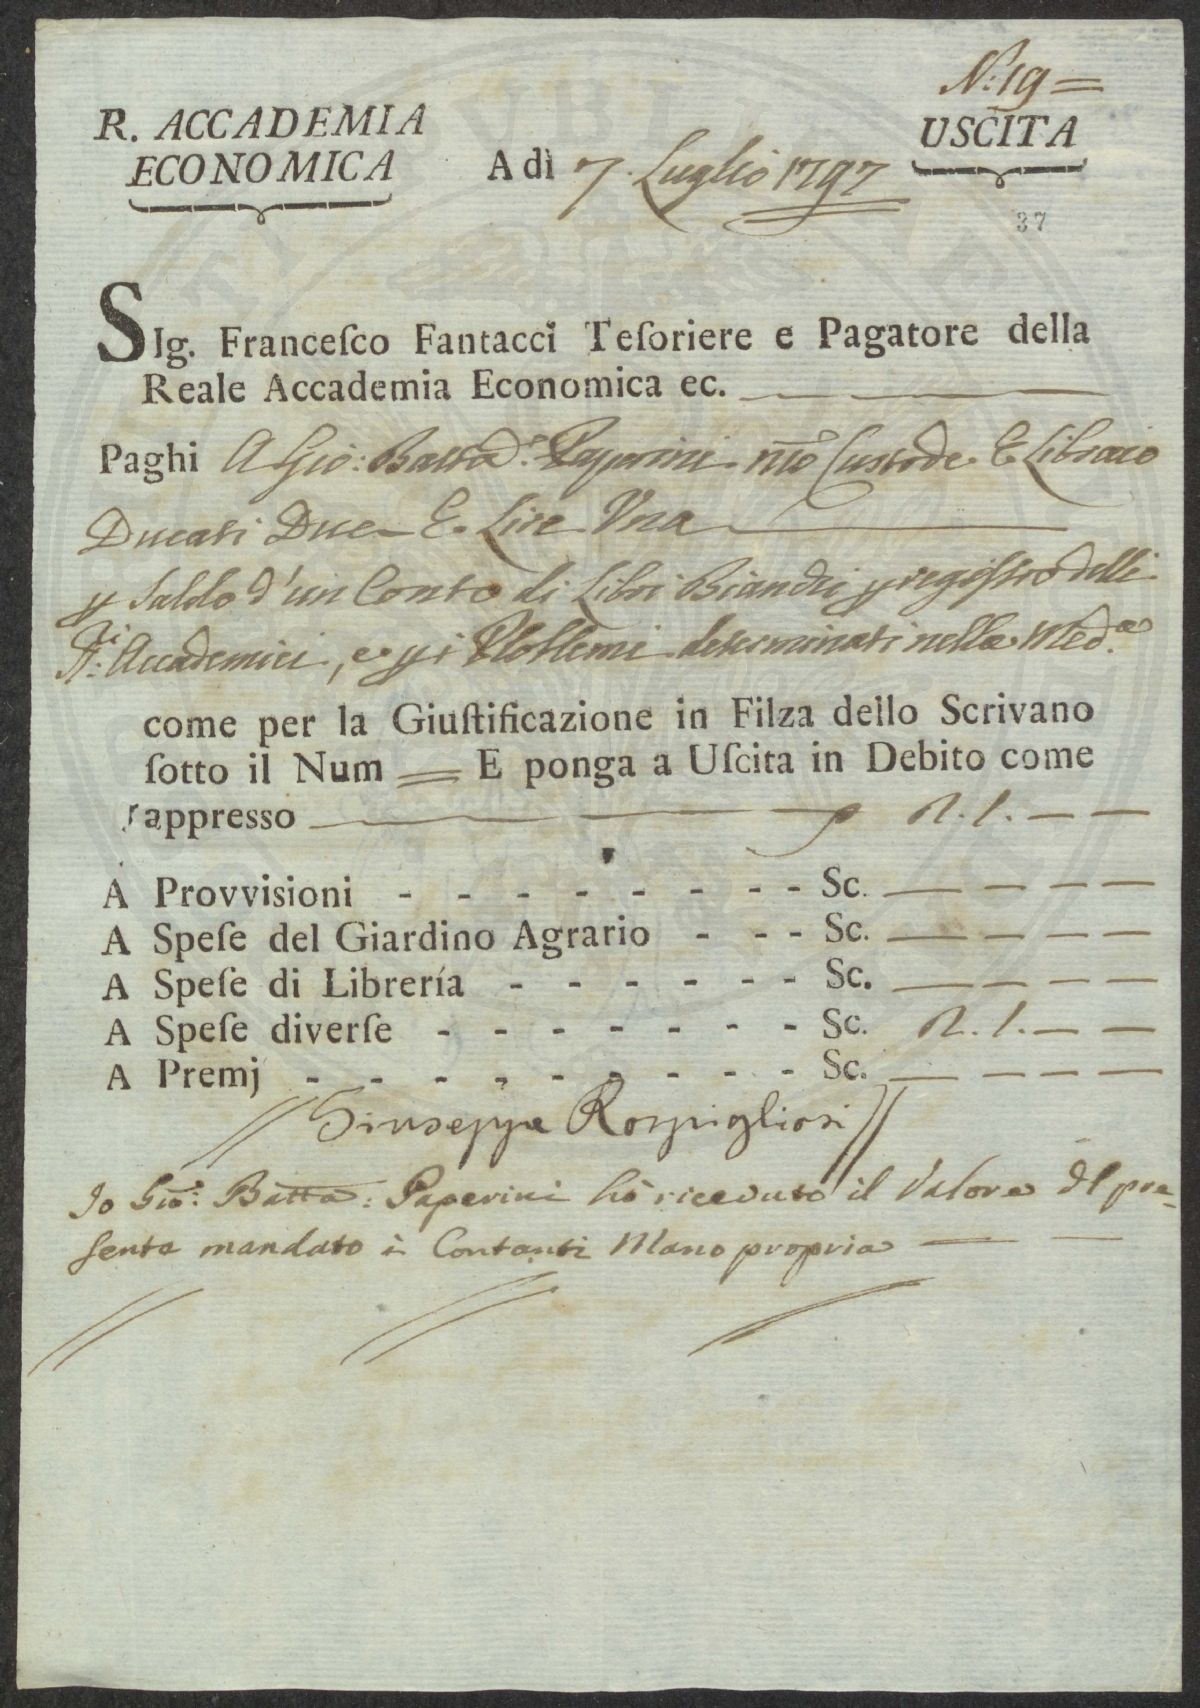 N.º 19 =
R. ACCADEMIA
ECONOMICA
A dì 7. Luglio 1797
USCITA
37
SIg. Franceſco Fantacci Teſoriere e Pagatore della
Reale Accademia Economica ec.
Paghi A Gio: Batta: Paperini nro Custode E Libraio
Ducati Due E. Lire Una
p Saldo d'un Conto di Libri Bianchi p registro delli
Accademici, e p i Problemi determinati nella Med.a
come per la Giuſtificazione in Filza dello Scrivano
ſotto il Num == E ponga a Uſcita in Debito come
appresso — 2. 1. — —
A Provviſioni - - - - - - - - Sc. — — — —
A Speſe del Giardino Agrario - - - Sc. — — — —
A Speſe di Librería - - - - - - Sc. — — — —
A Speſe diverſe - - - - - - - Sc. 2. 1. — —
A Premj - - - - - - - - - Sc. — — — —
Giuseppe Rospigliosi
Io Gio: Batta: Paperini hò ricevuto il Valore del pre=
sente mandato i Contanti Mano propria